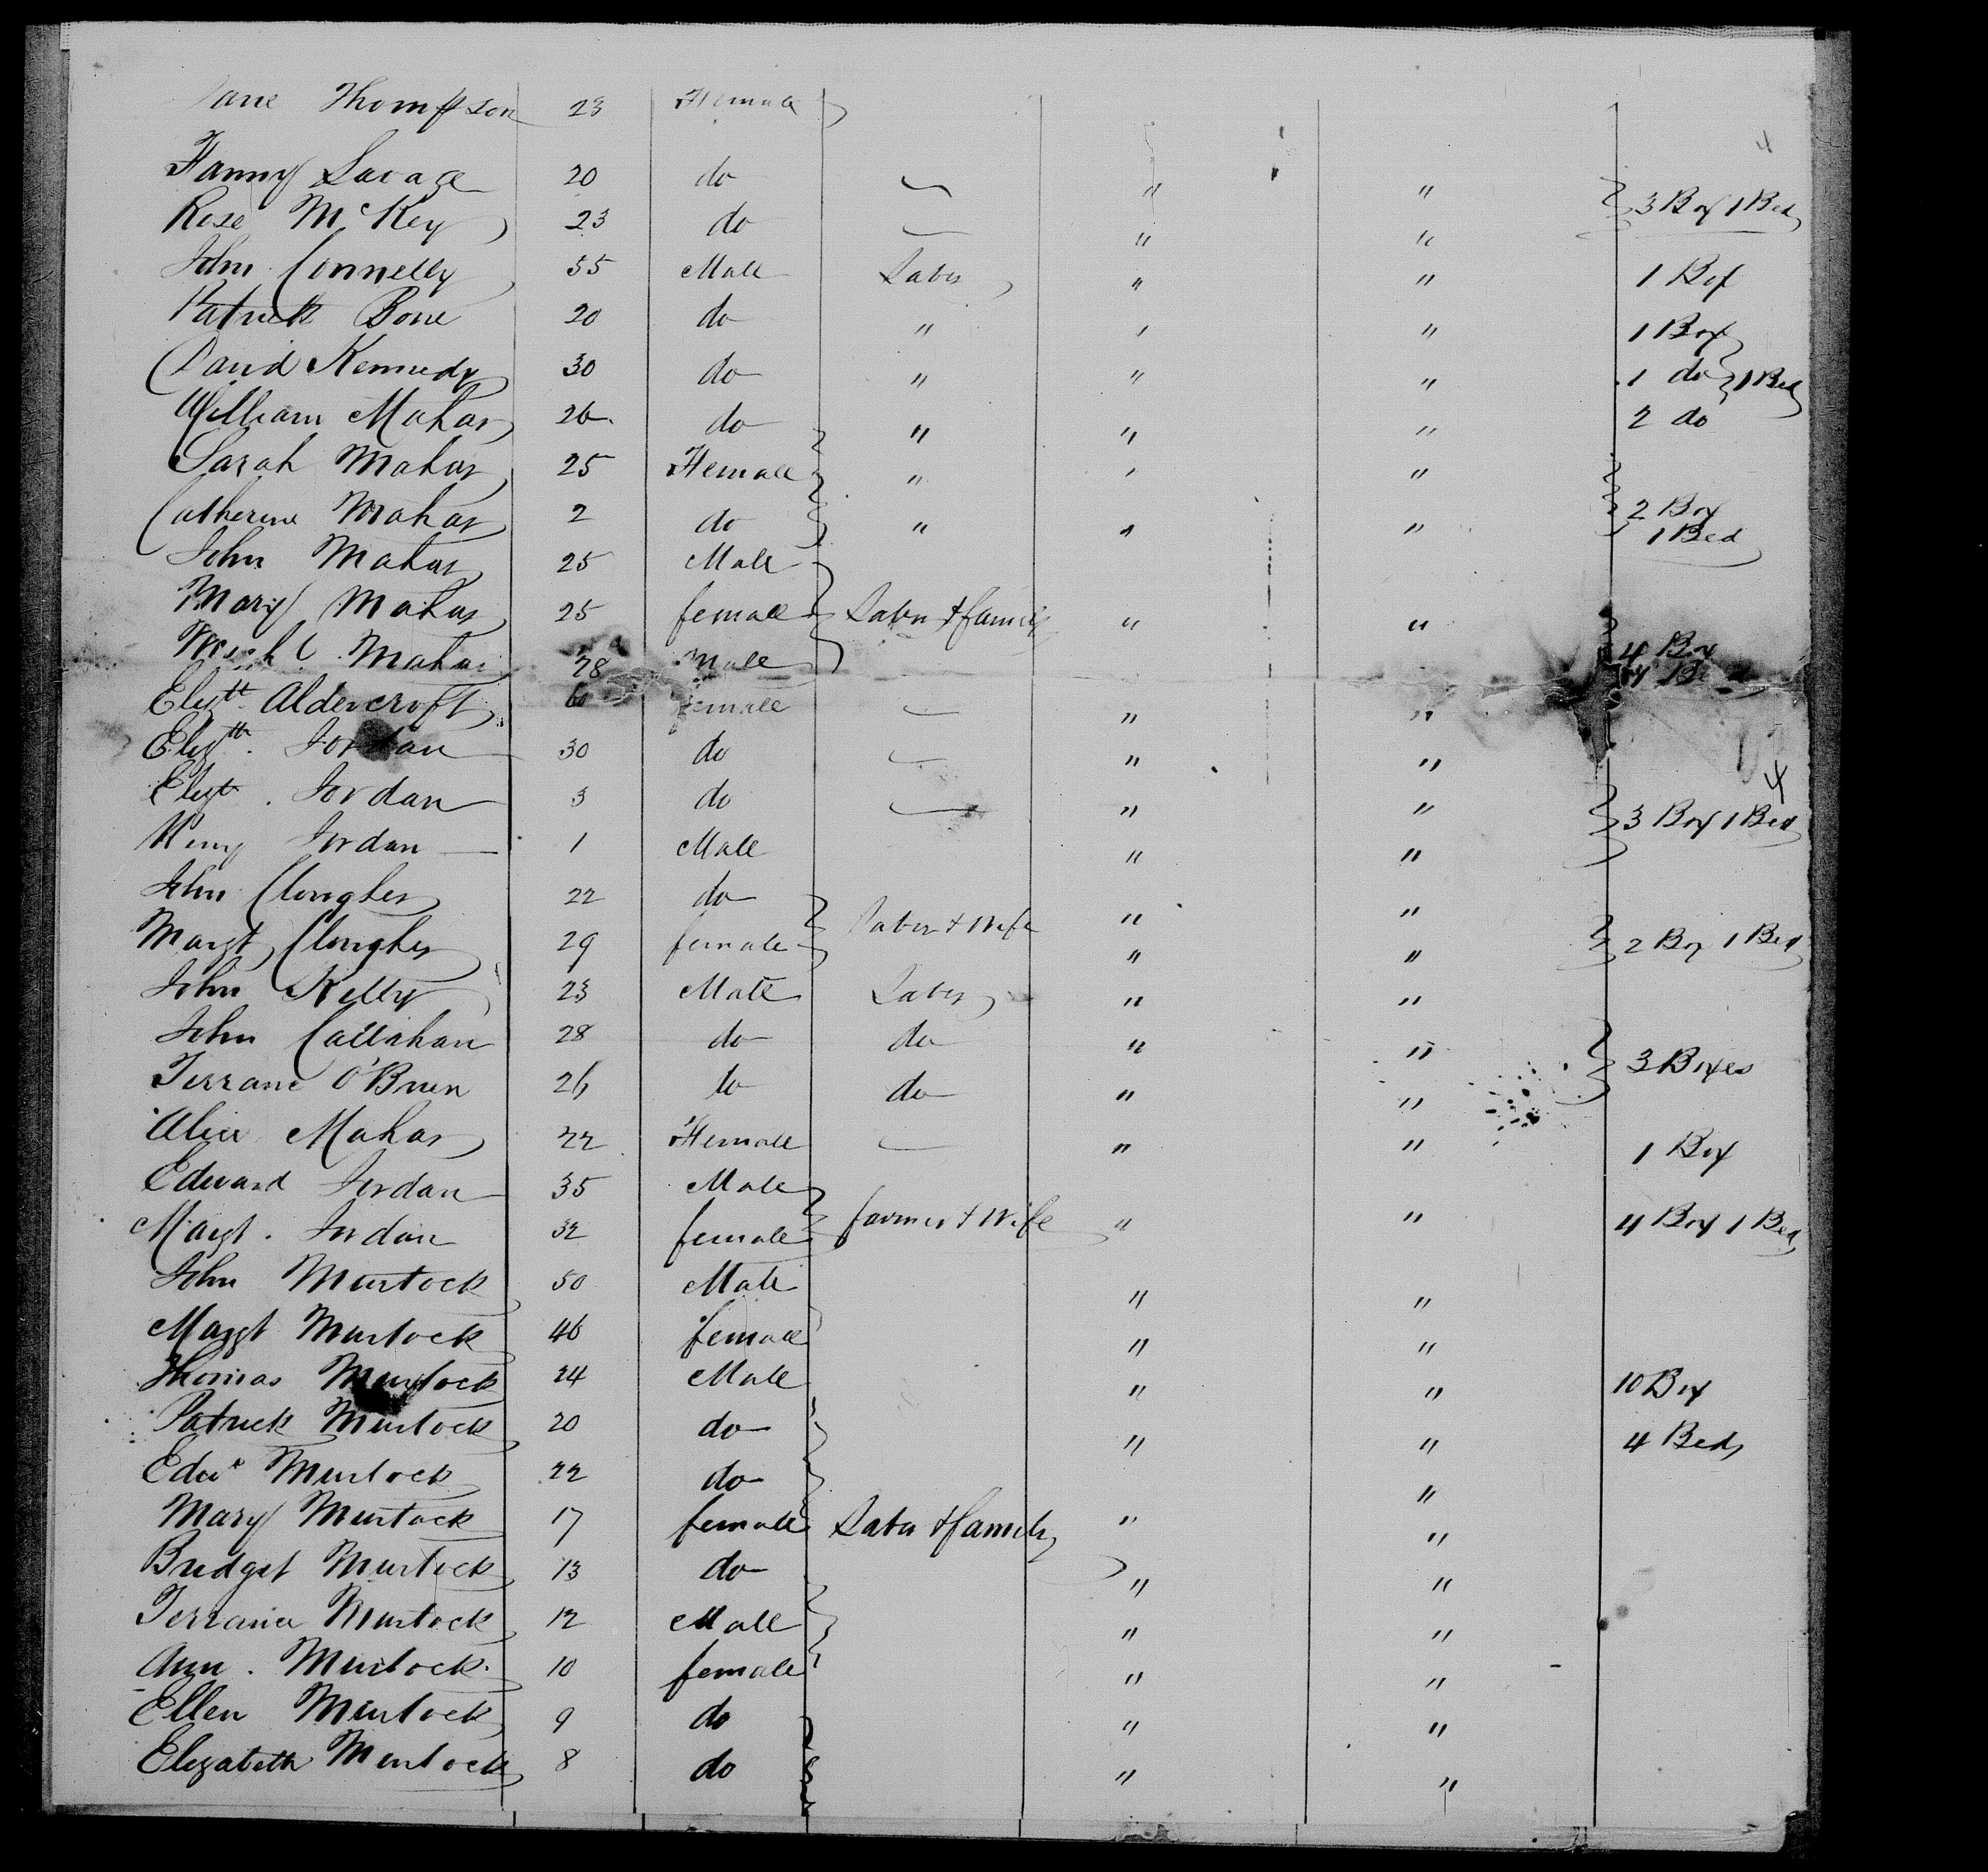 Jane Thompson 23 Female
4
Fanny Savage 20 do " "
Rose McKey 23 do " " 3 Box 1 Bed
John Connelly 35 Male Labor " " 1 Box
Patrick Bone 20 do " " " 1 Box
David Kennedy 30 do " " " 1 do 1 Bed
William Mahar 26 do " " " 2 do
Sarah Mahar 25 Female " " "
Catherine Mahar 2 do " " " 2 Box 1 Bed
John Mahar 25 Male
Mary Mahar 25 female Labor & family " "
Mahar 28 Male 4 Box
Elizth Aldercroft 60 female " "
Elizth. Jordan 30 do " "
4
Elizth. Jordan 3 do " " 3 Box 1 Bed
Henry Jordan 1 Male " "
John Clougher 22 do " "
Margt Clougher 29 female Labor & Wife " " 2 Box 1 Bed
John Kelly 23 Male Labor " "
John Callahan 28 do do " " 3 Boxes
Terrance O'Brien 26 do do " "
Alice Mahar 22 Female " " 1 Box
Edward Jordan 35 Male
Margt. Jordan 32 female farmer & Wife " " 4 Box 1 Bed
John Murtock 50 Male " "
Margt Murtock 46 female " "
Thomas Murtock 24 Male " " 10 Box
Patrick Murtock 20 do " " 4 Beds
Edwd Murtock 22 do "
Mary Murtock 17 female Labor & family " "
Bridget Murtock 13 do " "
Terrance Murtock 12 Male " "
Ann. Murtock 10 female " "
Ellen Murtock 9 do " "
Elizabeth Murtock 8 do " "